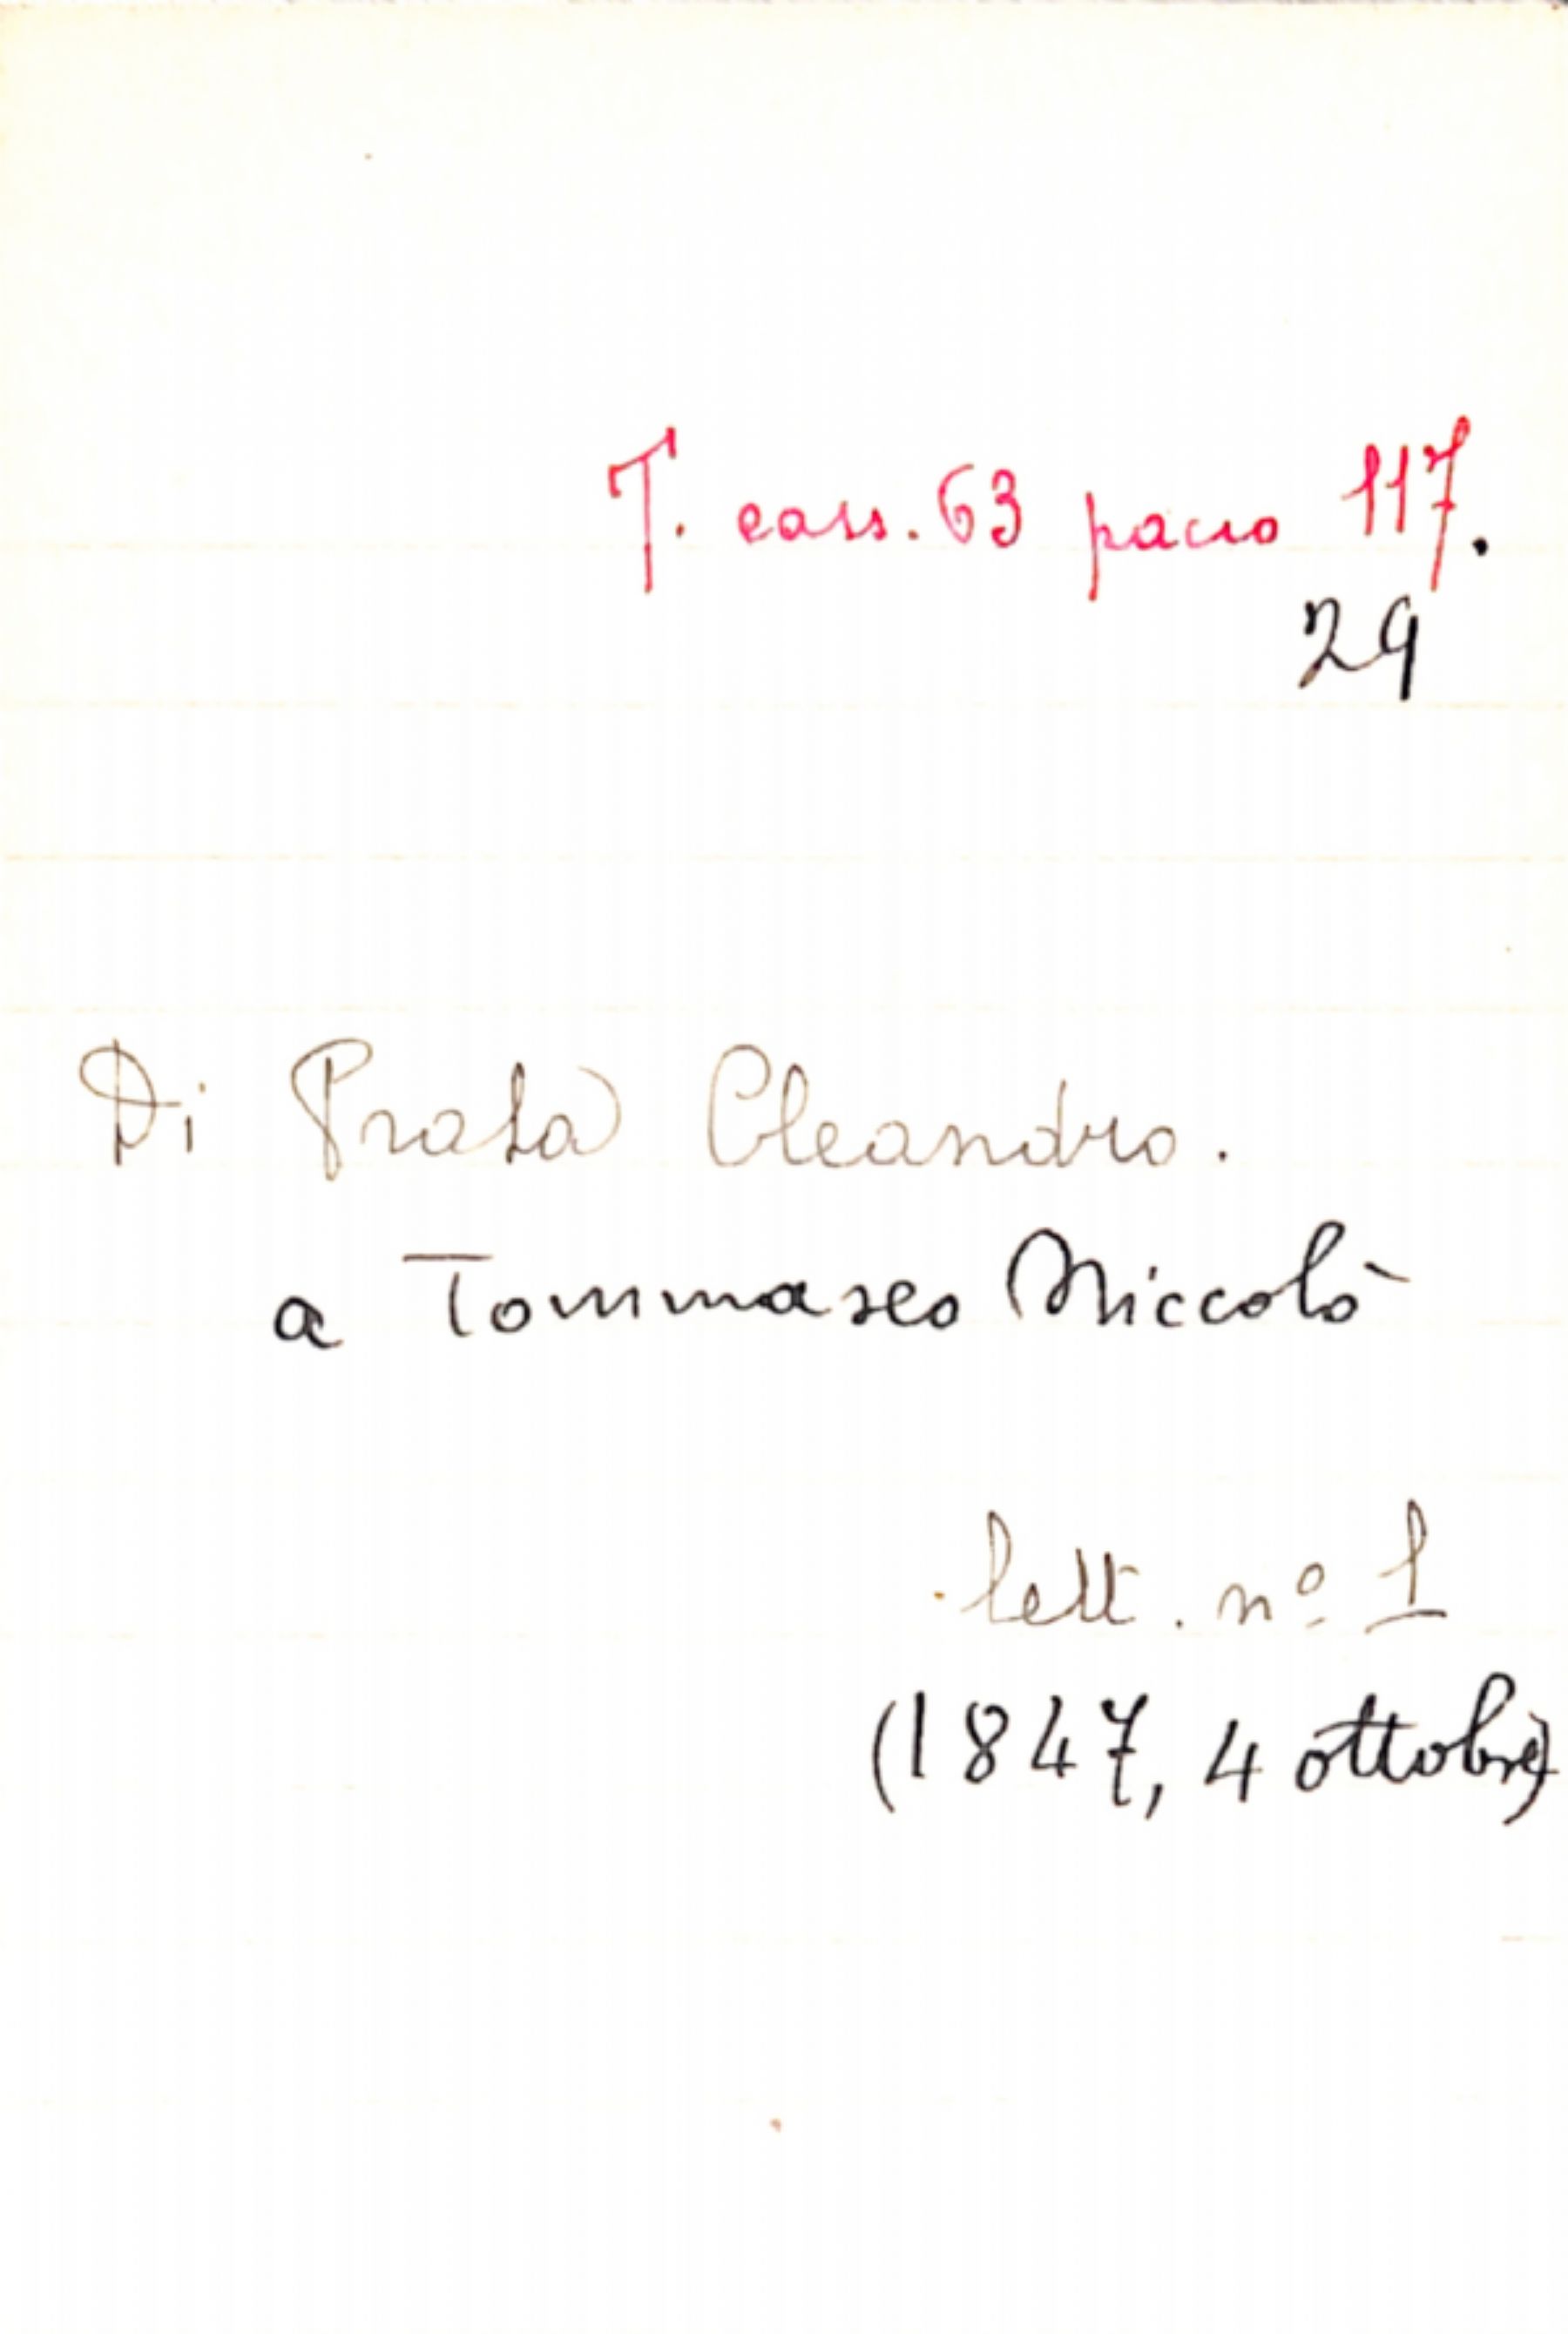 T. cass. 63 pacco 117.
29
Di Prata Cleandro.
a Tommaseo Niccolò
lett. nº 1
(1847, 4 ottobre)